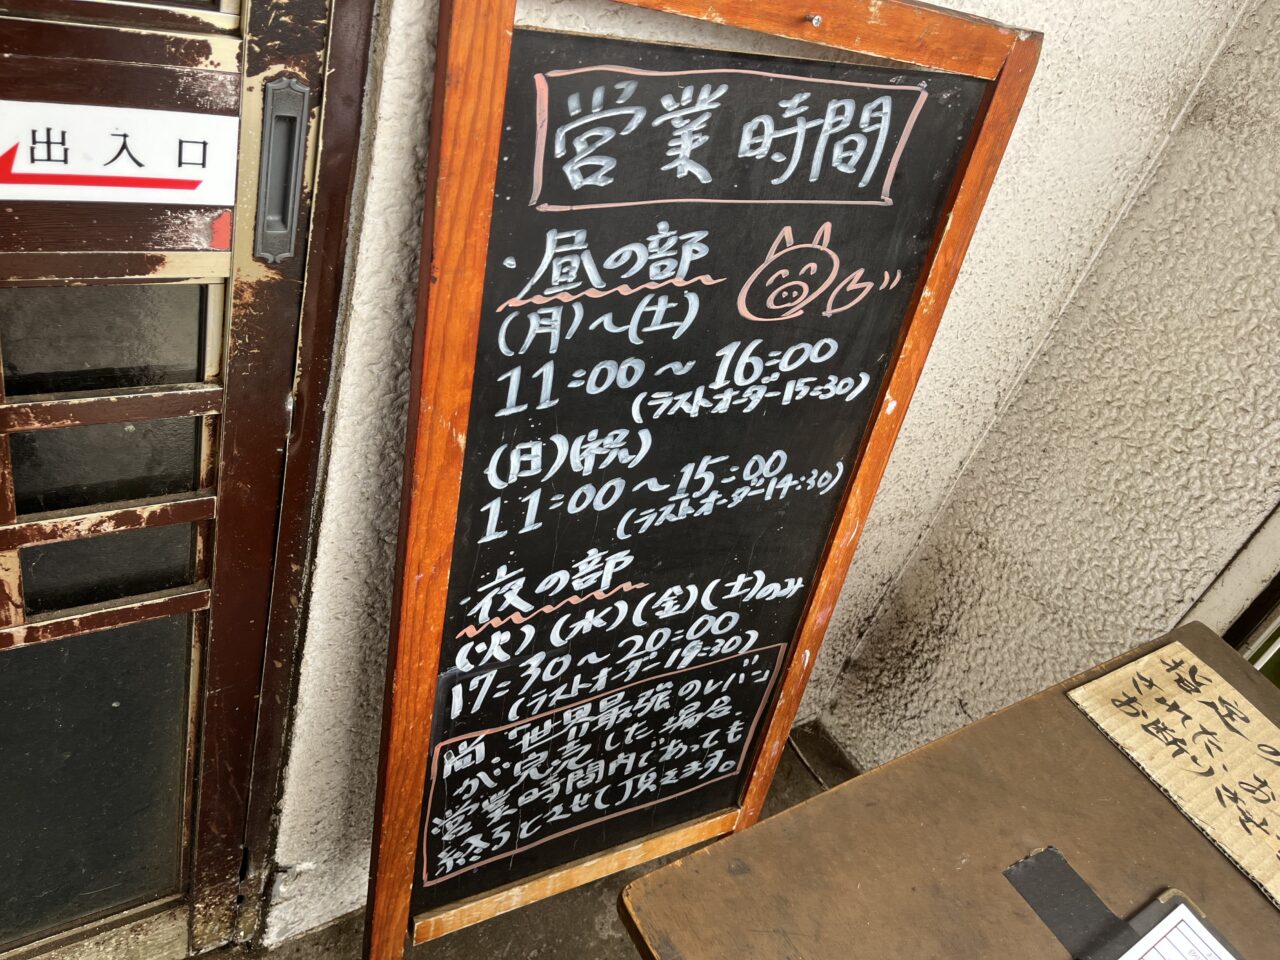 出入口
営業時間
・昼の部
(月)～(土)
11:00～16:00
(ラストオーダー15:30)
(日)(祝)
11:00～15:00
(ラストオーダー14:30)
・夜の部
(火)(水)(金)(土)のみ
17:30～20:00
(ラストオーダー19:30)
尚、世界最強のレバー
が完売した場合、
営業時間内であっても
終らとさせて頂きます。
指定の
された、お
お断りさせ